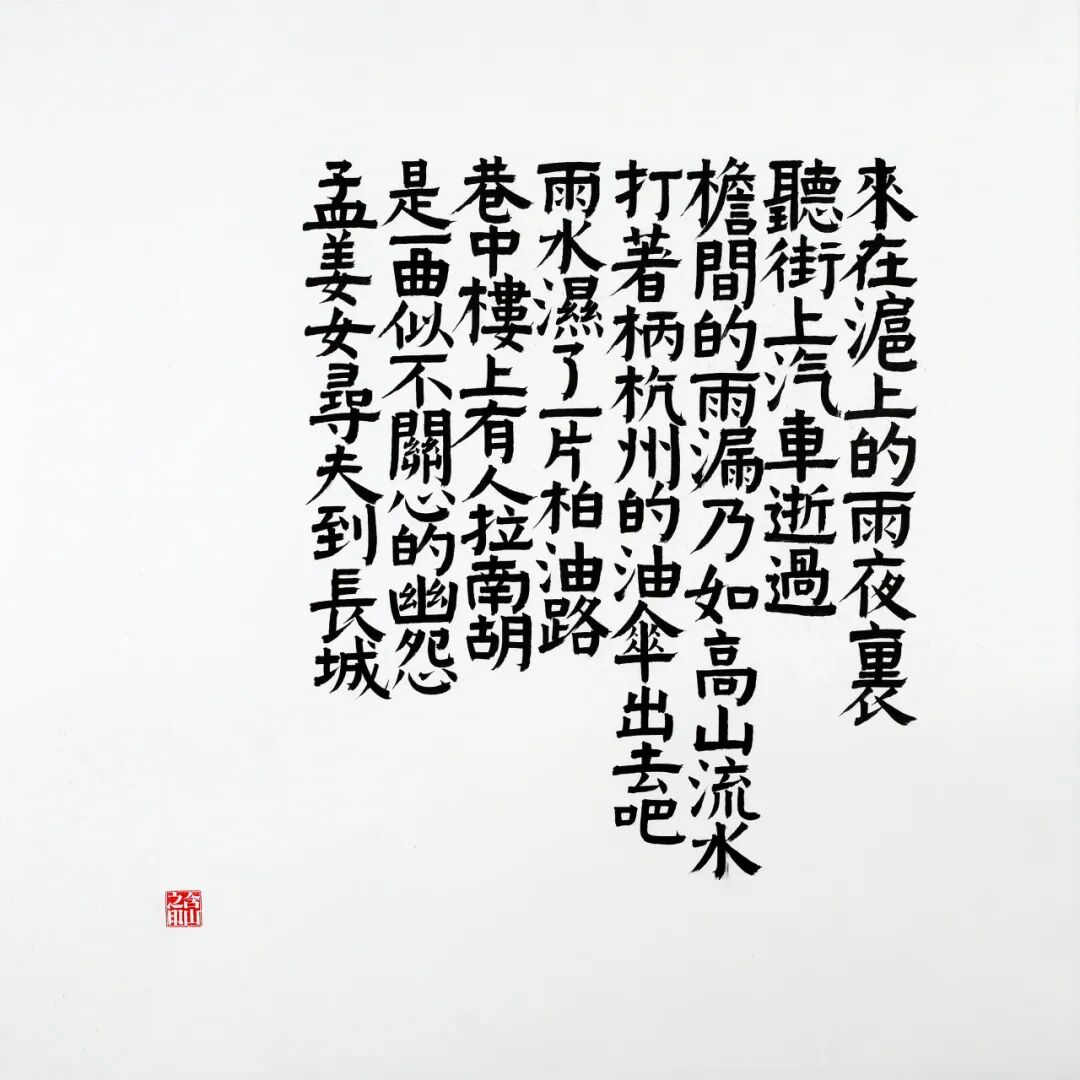 來在滬上的雨夜裏
聽街上汽車逝過
檐間的雨漏乃如高山流水
打著柄杭州的油傘出去吧
雨水濕了一片柏油路
巷中樓上有人拉南胡
是一曲似不關心的幽怨
孟姜女尋夫到長城